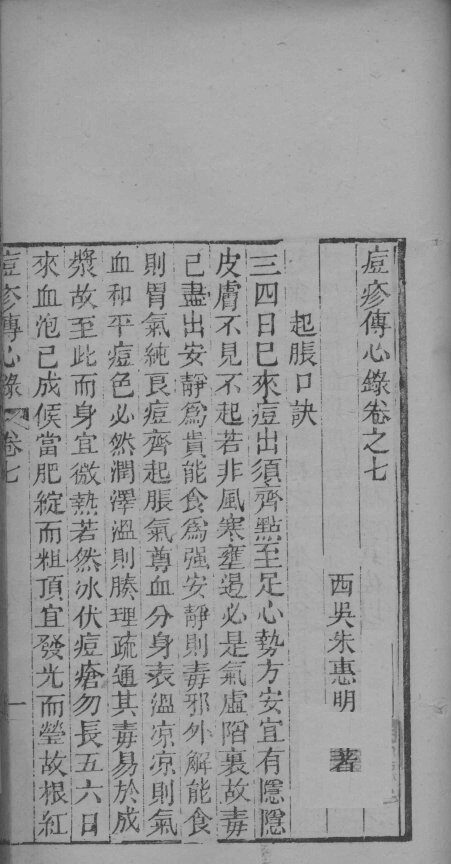 痘疹傳心錄卷之七
西吳朱惠明 著
起脹口訣
三四日已來痘出須齊點至足心勢方安宜有隱隱
皮膚不見不起若非風寒壅遏必是氣虛陷裏故毒
已盡出安靜爲貴能食爲强安靜則毒邪外解能食
則胃氣純良痘齊起脹氣尊血分身表溫凉凉則氣
血和平痘色必然潤澤溫則腠理疏通其毒易於成
漿故至此而身宜微熱若然冰伏痘瘡勿長五六日
來血泡已成候當肥綻而粗頂宜發光而瑩故根紅
痘疹傳心錄 卷七 一